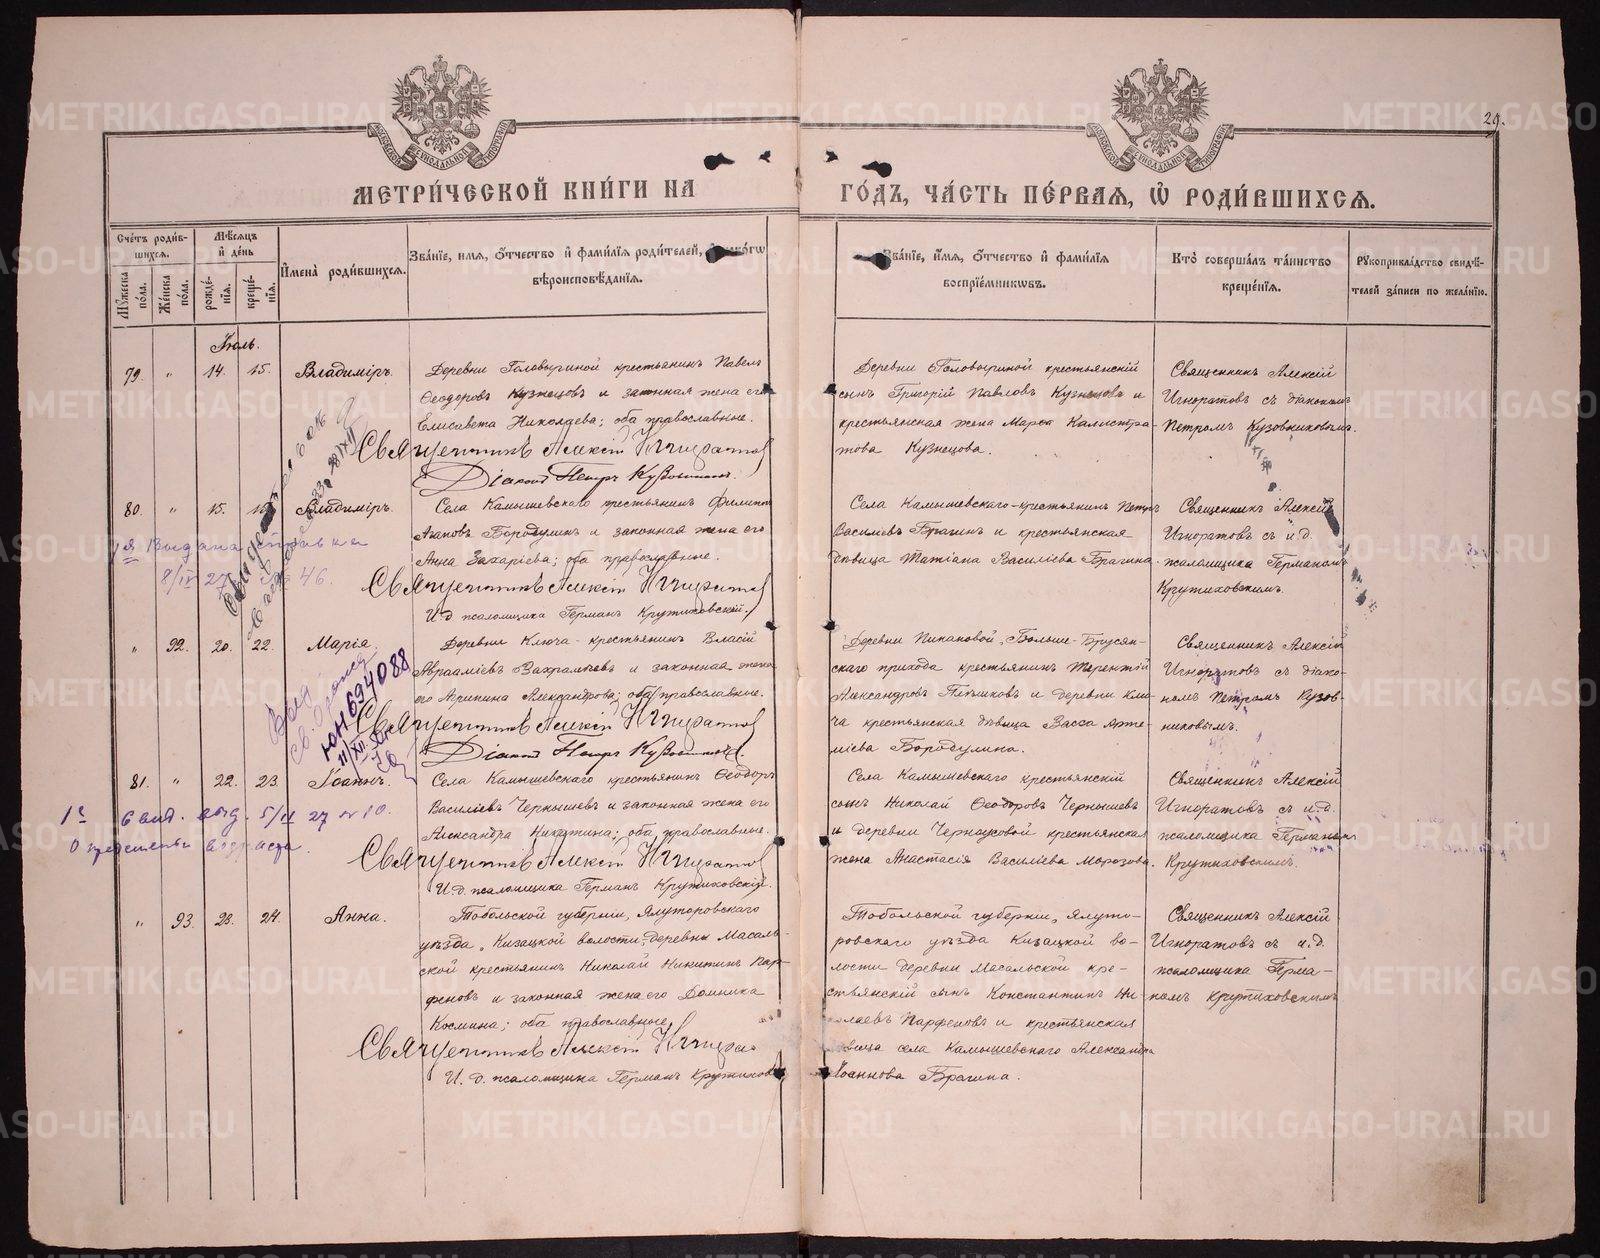 29.
МЕТРИ́ЧЕСКОЙ КНИ́ГИ НА ГО́ДЪ, ЧА́СТЬ ПЕ́РВАЯ, Ѡ҆ РОДИ́ВШИХСѦ.
Сче́тъ роди́вшихсѧ.
Мꙋ́жеска по́ла.
Же́нска по́ла.
Мѣ́сѧцъ и҆ де́нь
рожде́нїѧ.
креще́нїѧ.
И҆мена̀ роди́вшихсѧ.
Зва́нїе, и҆мѧ, о҆́тчество и҆ фами́лїѧ роди́телей,
вѣроисповѣ́данїѧ.
Зва́нїе, и҆́мѧ, о҆́тчество и҆ фами́лїѧ
воспрїе́мниковъ.
Кто̀ соверша́лъ та́инство
креще́нїѧ.
Рꙋкоприкла́дство свидѣ́-
телей за́писи по жела́нїю.
Іюль.
79. " 14. 15. Владиміръ.
Деревни Головыриной крестьянинъ Павелъ
Ѳеодоровъ Кузнецовъ и законная жена его
Елисавета Николаева; оба православные.
Священникъ Алексій Игноратовъ
Діаконъ Петръ Кузовниковъ.
Деревни Головыриной крестьянскій
сынъ Григорій Павловъ Кузнецовъ и
крестьянская жена Марѳа Калистра-
това Кузнецова.
Священникъ Алексій
Игноратовъ съ діакономъ
Петромъ Кузовниковымъ.
80. " 15. 15. Владиміръ.
Села Камышевскаго крестьянинъ Филиппъ
Агаповъ Бородулинъ и законная жена его
Анна Захаріева; оба православные.
Священникъ Алексій Игноратовъ
И.д. псаломщика Германъ Крутиховскій.
Села Камышевскаго крестьянинъ Петръ
Васильевъ Брагинъ и крестьянская
дѣвица Татіана Васильева Брагина.
Священникъ Алексій
Игноратовъ съ и.д.
псаломщика Германомъ
Крутиховскимъ.
1я Выдана справка
8/IV 27 № 46.
" 92. 20. 22. Марія.
Деревни Ключа крестьянинъ Власій
Авраамиевъ Вахрамѣевъ и законная жена
его Агрипина Александрова; оба православные.
Священникъ Алексій Игноратовъ
Діаконъ Петръ Кузовниковъ.
Деревни Пипановой, Больше-Брусян-
скаго прихода крестьянинъ Терентій
Александровъ Плѣшковъ и деревни Клю-
ча крестьянская дѣвица Васса Арте-
міева Бородулина.
Священникъ Алексій
Игноратовъ съ діако-
номъ Петромъ Кузов-
никовымъ.
св. о
ЮН 694088
81. " 22. 23. Іоаннъ.
Села Камышевскаго крестьянинъ Ѳеодоръ
Василіевъ Чернышевъ и законная жена его
Александра Никитина; оба православные.
Священникъ Алексій Игноратовъ
И.д. псаломщика Германъ Крутиховскій.
Села Камышевскаго крестьянскій
сынъ Николай Ѳеодоровъ Чернышевъ
и деревни Черноусовой крестьянская
жена Анастасія Васильева Морозова.
Священникъ Алексій
Игноратовъ съ и.д.
псаломщика Германомъ
Крутиховскимъ.
выд. 5/II 27 № 10.
возраста
" 93. 23. 24. Анна.
Тобольской губерніи, Ялуторовскаго
уѣзда, Кизацкой волости, деревни Масаль-
ской крестьянинъ Николай Никитинъ Пар-
феновъ и законная жена его Домника
Космина; оба православные.
Священникъ Алексій Игнора
И.д. псаломщика Германъ Крутихов
Тобольской губерніи, Ялуто-
ровскаго уѣзда Кизацкой во-
лости деревни Масальской кре-
стьянскій сынъ Константинъ Ни-
колаевъ Парфеновъ и крестьянская
дѣвица села Камышевскаго Александра
Іоаннова Брагина.
Священникъ Алексій
Игноратовъ съ и.д.
псаломщика Герма-
номъ Крутиховскимъ
METRIKI.GASO-URAL.RU